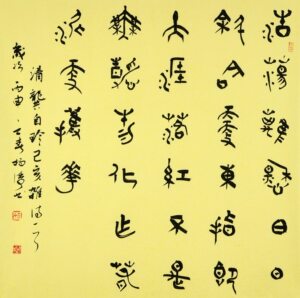 浩蕩離愁白日
斜吟鞭東指即
天涯落紅不是
無情物化作春
泥更護花
清龔自珍己亥雜詩一首
歲次丙申